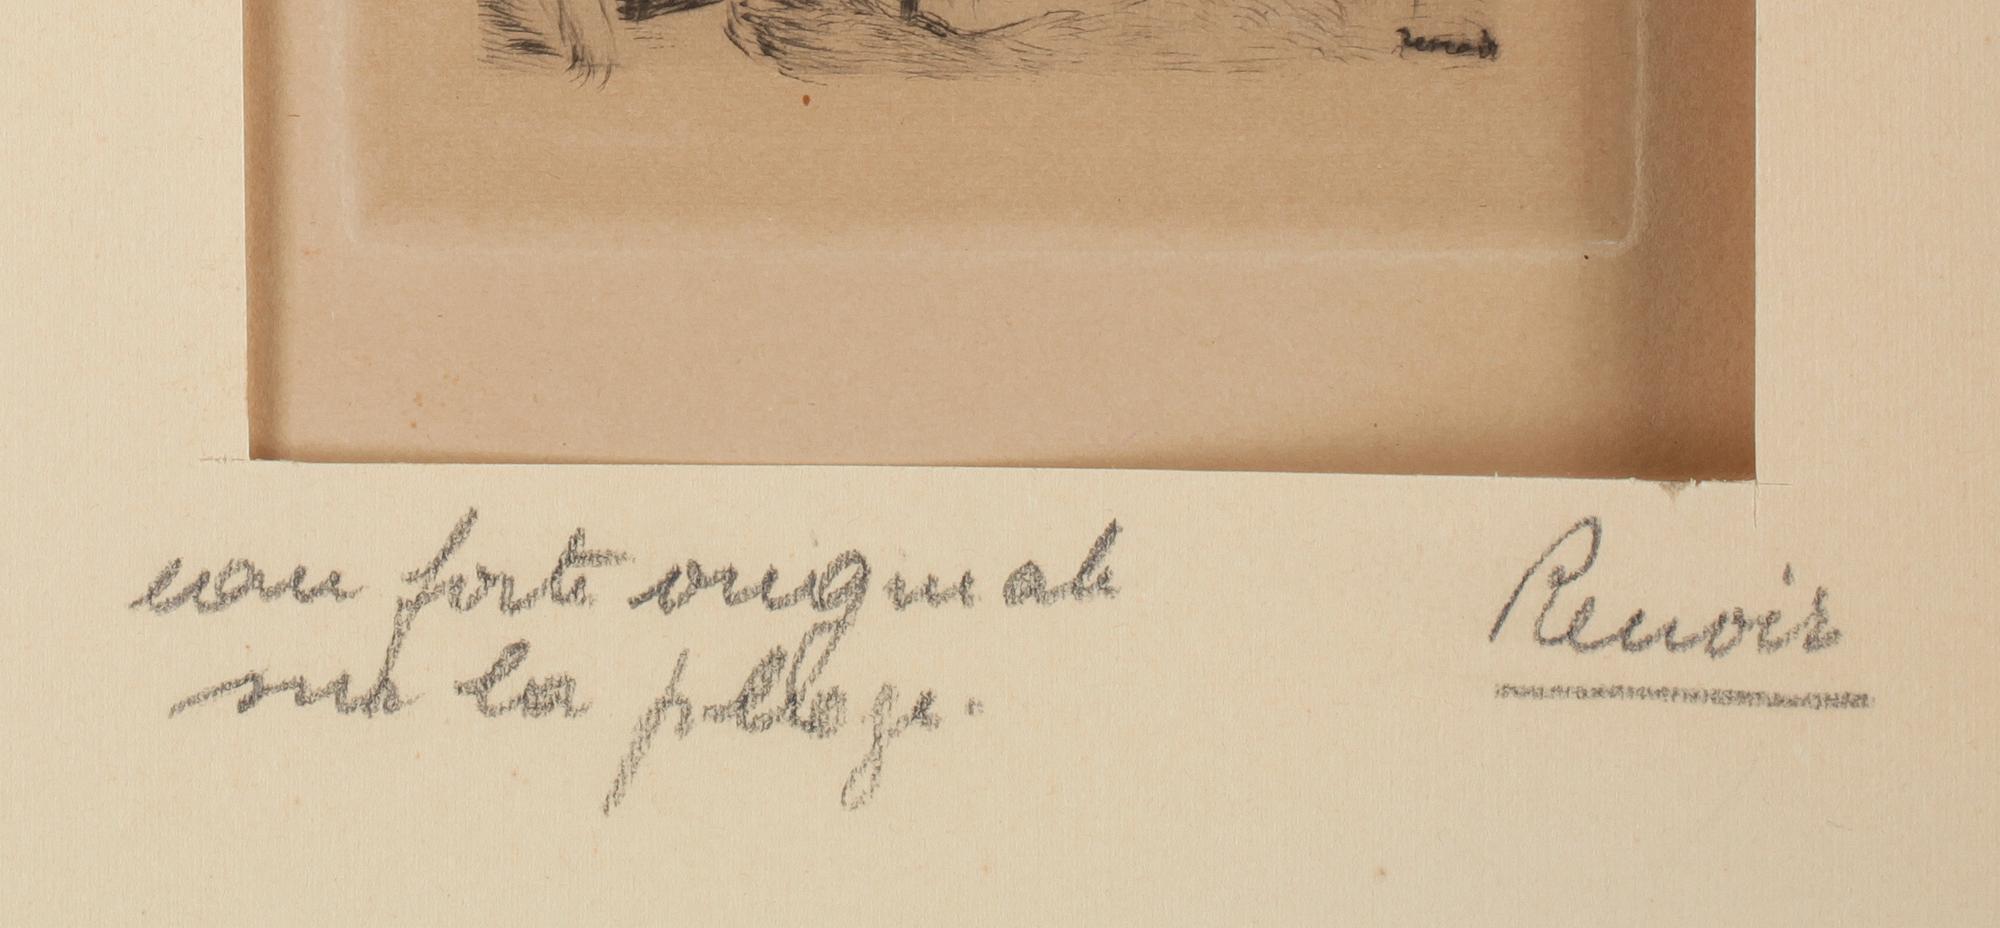 Renoir
eau forte originale
sur la plage.
Renoir